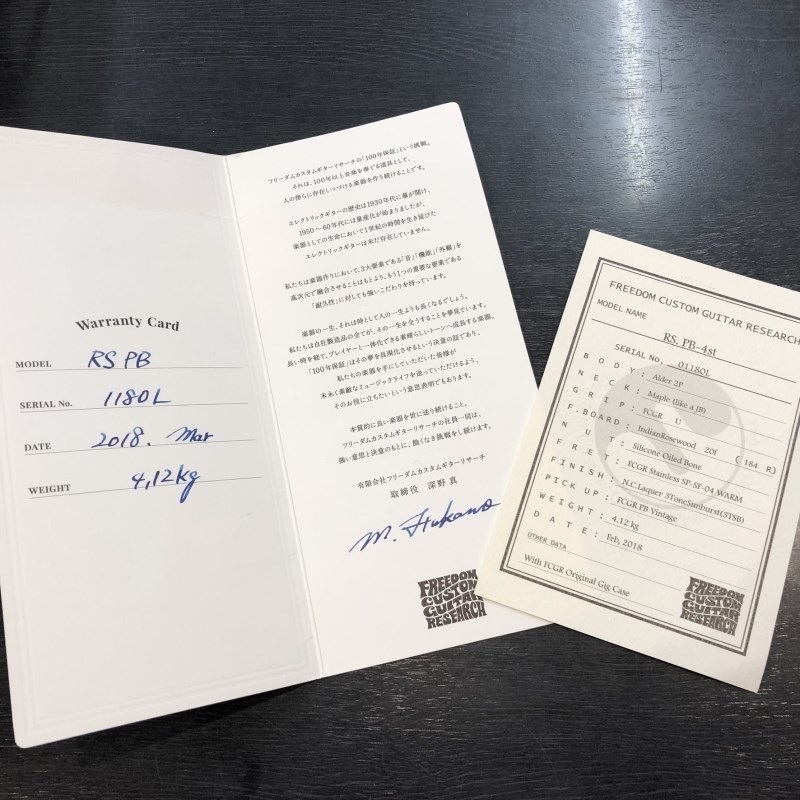 Warranty Card
MODEL RS PB
SERIAL No. 1180L
DATE 2018. Mar
WEIGHT 4,12kg
フリーダムカスタムギターリサーチの「100年保証」という挑戦。
それは、100年以上音楽を奏でる道具として、
人の傍らに存在しつづける楽器を作り続けることです。
エレクトリックギターの歴史は1930年代に幕が開け、
1950～60年代には量産化が始まりましたが、
楽器としての生命において1世紀の時間を生き延びた
エレクトリックギターは未だ存在していません。
私たちは楽器作りにおいて、3大要素である「音」「機能」「外観」を
高次元で融合させることはもとより、もう1つの重要な要素である
「耐久性」に対しても強いこだわりを持っています。
楽器の一生、それは時として人の一生よりも長くなるでしょう。
私たちは自社製造品の全てが、その一生を全うすることを夢見ています。
長い時を経て、プレイヤーと一体化できる素晴らしいトーンへ成長する楽器。
「100年保証」はその夢を具現化させるという決意の証であり、
私たちの楽器を手にしていただいた皆様が
末永く素敵なミュージックライフを送っていただけるよう、
そのお役に立ちたいという意思表明でもあります。
本質的に良い楽器を世に送り続けること。
フリーダムカスタムギターリサーチの社員一同は、
強い意思と決意のもとに、飽くなき挑戦をし続けます。
有限会社フリーダムカスタムギターリサーチ
取締役 深野 真
M. Fukano
FREEDOM
CUSTOM
GUITAR
RESEARCH
FREEDOM CUSTOM GUITAR RESEARCH
MODEL NAME
RS. PB-4st
SERIAL NO. 01180L
BODY: Alder 2P
NECK: Maple (like a JB)
GRIP: FCGR U
F-BOARD: IndianRosewood 20f (184 R)
NUT: Silicone Oiled Bone
FRET: FCGR Stainless SP-SF-04 WARM
FINISH: N.C.Laquer 3ToneSunburst(3TSB)
PICK UP: FCGR PB Vintage
WEIGHT: 4.12 kg
DATE: Feb, 2018
OTHER DATA
With FCGR Original Gig Case
FREEDOM
CUSTOM
GUITAR
RESEARCH